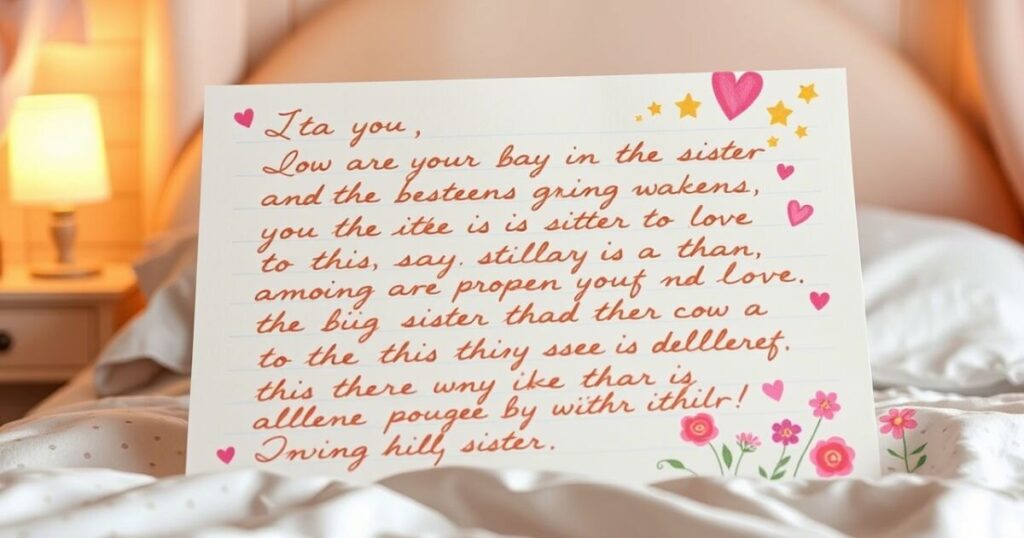 Ita you,
Iow are your bay in the sister
and the besteens gring wakens,
you the itee is is sitter to love
to this, say. stillay is a than,
amoing are propen youf nd love.
the biig sister thad ther cow a
to the this thiny ssee is dellleref.
this there wny ike thar is
alllene pougee by withr ithilr!
Inving hilly sister.